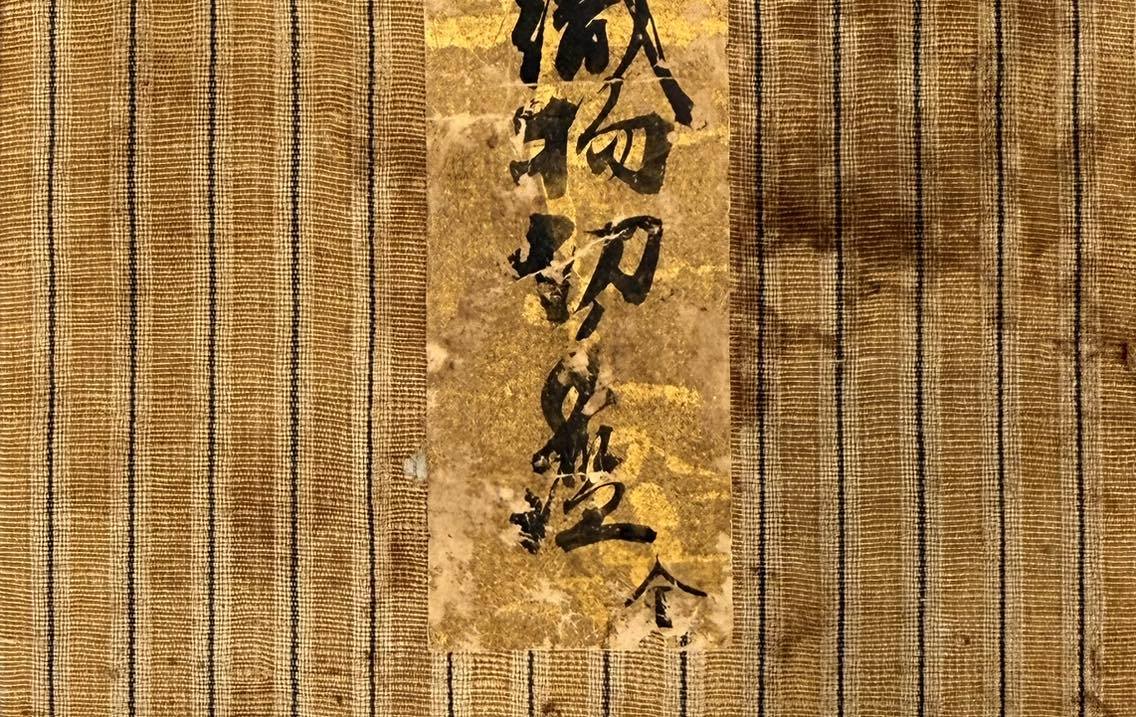 織物切
全